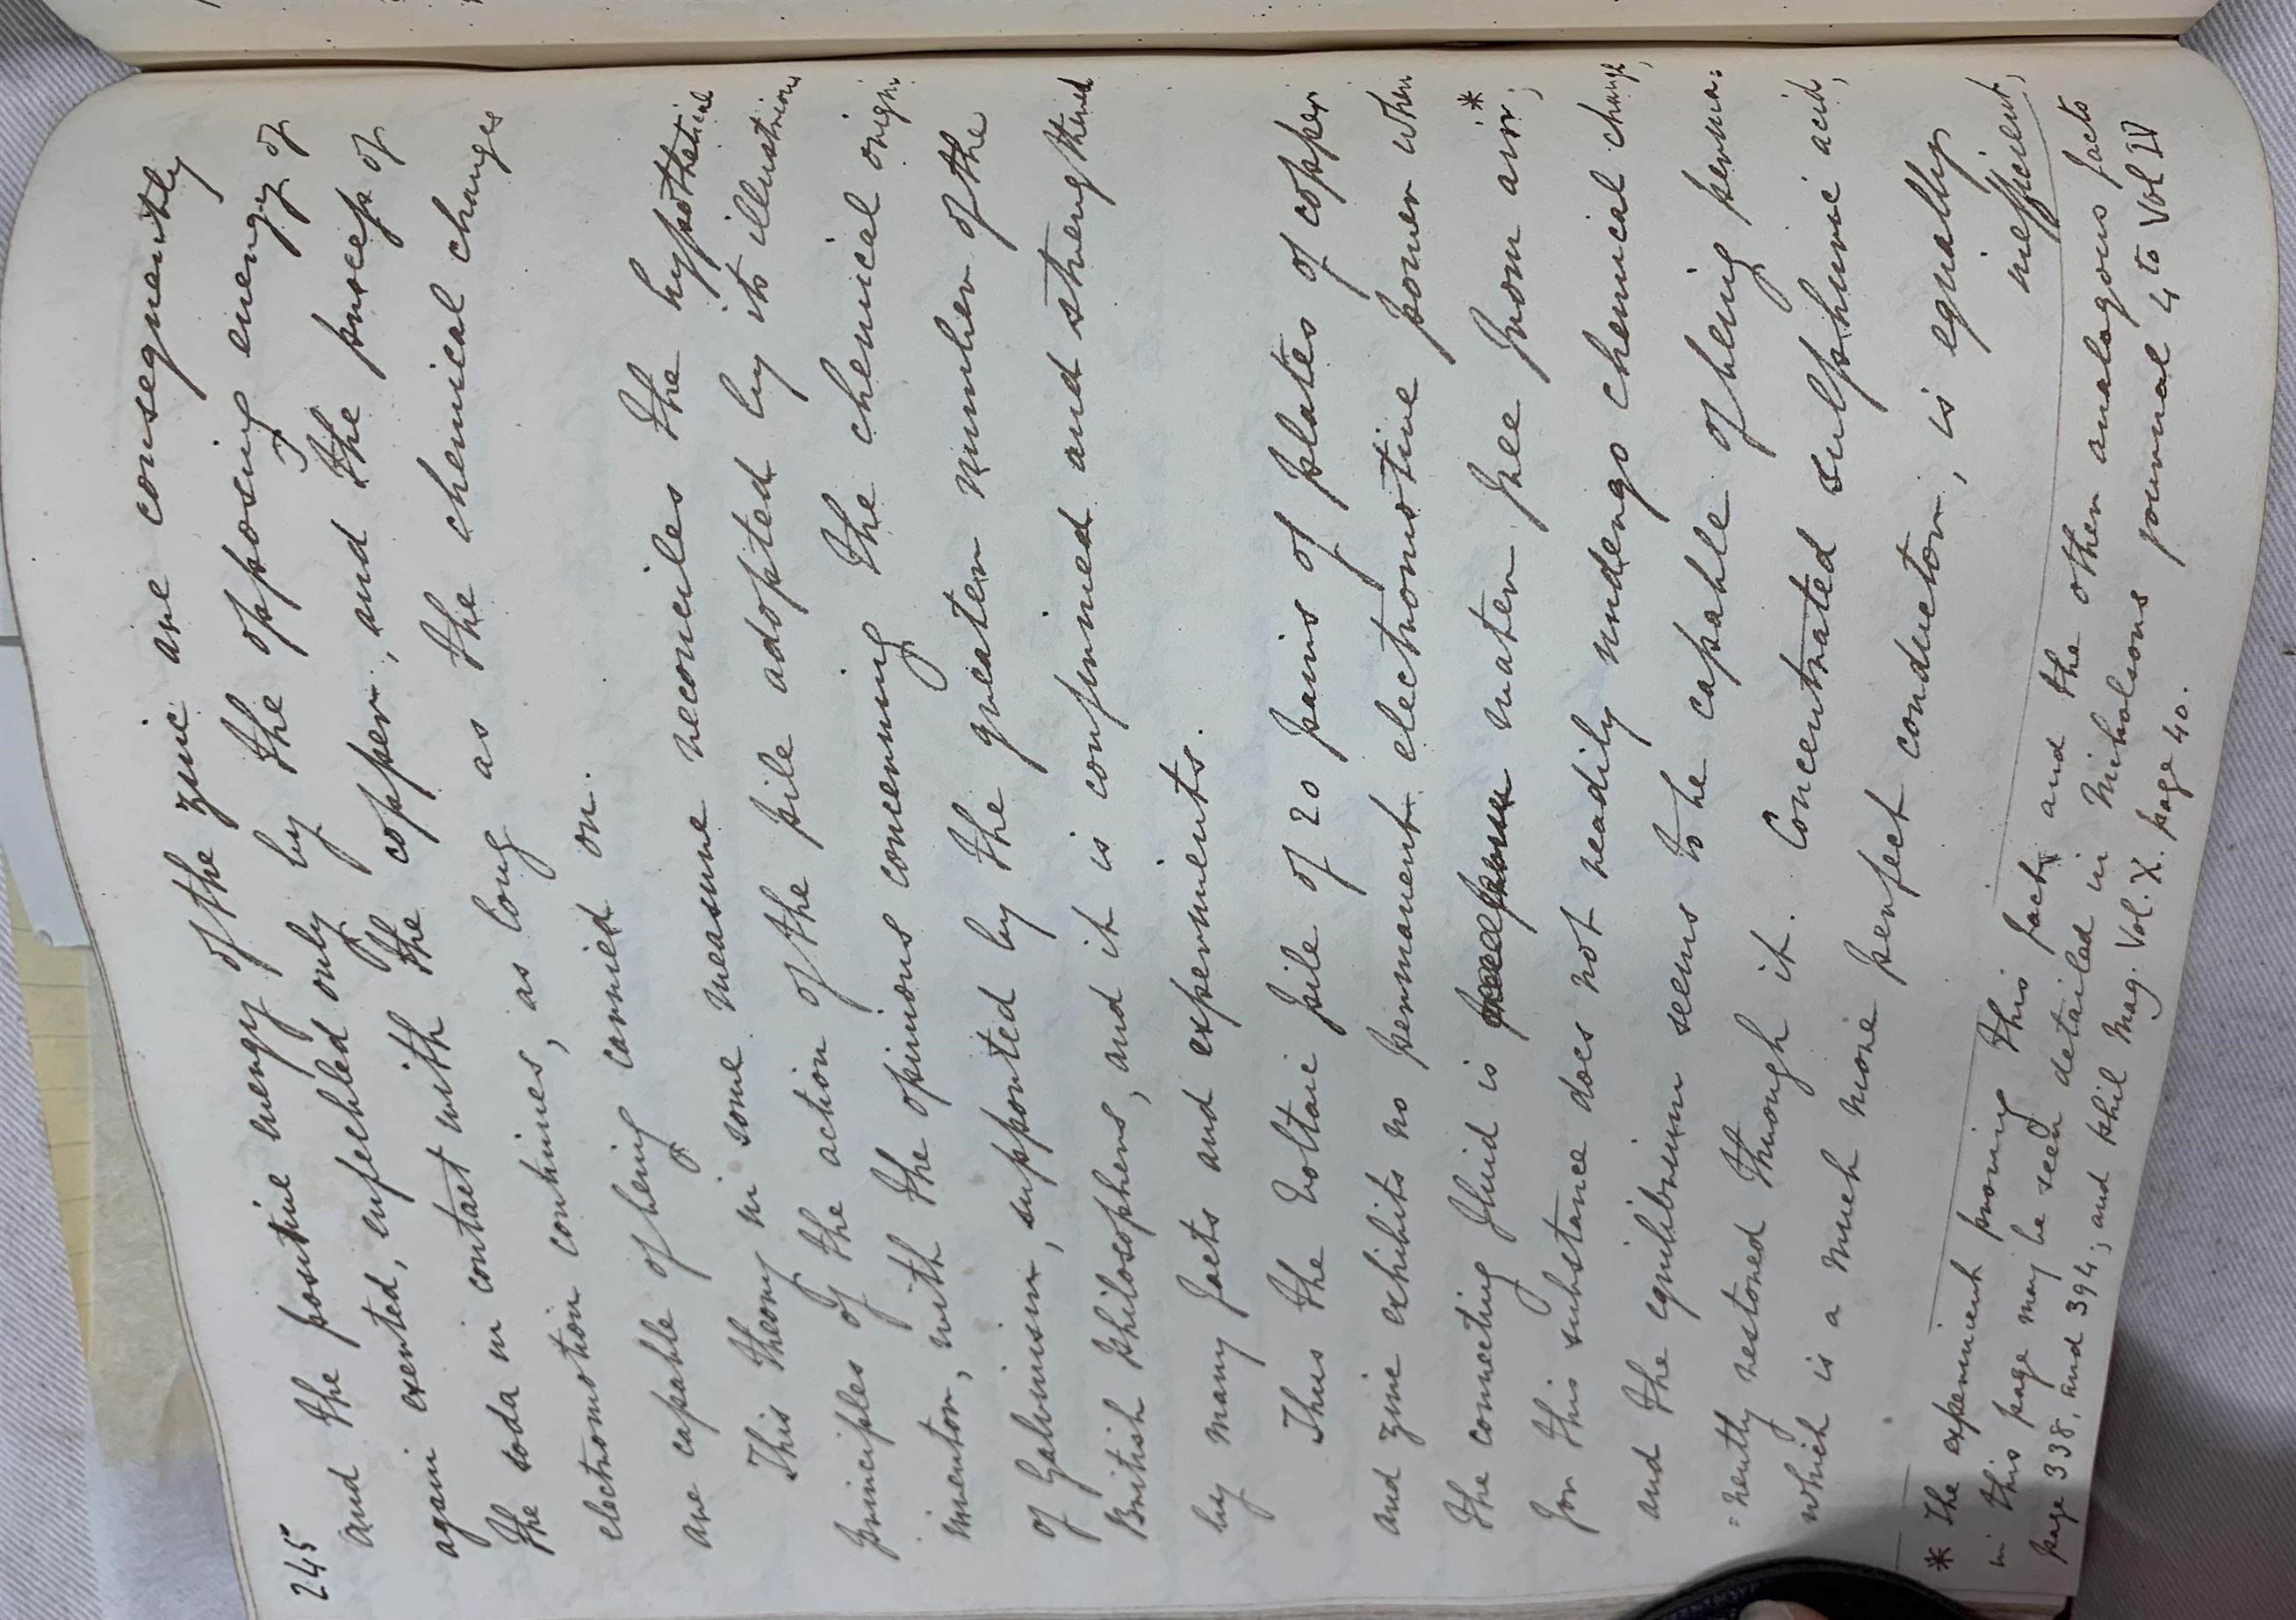 245
and the positive energy of the zinc are consequently
again exerted, enfeebled only by the opposing energy of
the soda in contact with the copper, and the process of
electromotion continues, as long as the chemical changes
are capable of being carried on.
This theory in some measure reconciles the hypothetical
principles of the action of the pile adopted by its illustrious
inventor, with the opinions concerning the chemical origin
of Galvanism, supported by the greater number of the
British Philosophers, and it is confirmed and strengthened
by many facts and experiments.
Thus the Voltaic pile of 20 pairs of plates of copper
and zinc exhibits no permanent electromotive power when
the connecting fluid is water free from air;*
for this substance does not readily undergo chemical change,
and the equilibrium seems to be capable of being perma=
=nently restored through it. Concentrated sulphuric acid,
which is a much more perfect conductor, is equally
inefficient,
* The experiment proving this fact, and the other analogous facts
in this page may be seen detailed in Nicholsons journal 4to Vol IV
page 338, and 394; and Phil Mag. Vol. X. page 40.